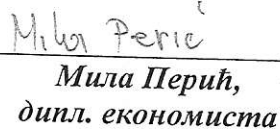 Mila Perić
Мила Перић,
дипл. економиста